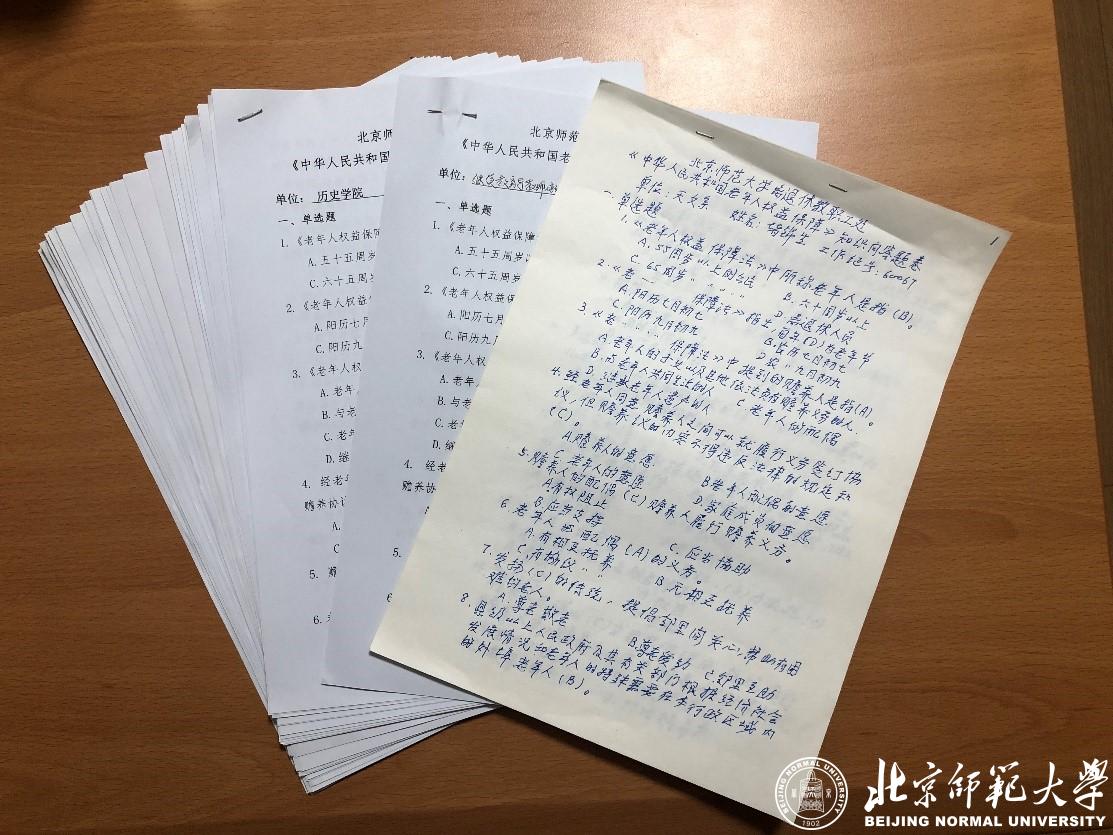 北京师
《中华人民共和国
单位: 历史学院
一、单选题
1. 《老年人权益保障
A.五十五周岁
C.六十五周
2. 《老年人权益
A.阳历七月
C.阳历九
3. 《老年人
A.老年
B.与老
C.老年
D.继
4. 经老
赡养协议
A.
C
5. 赡
6.
北京师范
《中华人民共和国老
单位:
一、单选题
1. 《老年人权益保
A.五十五周岁
C.六十五周
2. 《老年人权益
A.阳历七月
C.阳历九月
3. 《老年人
A.老年
B.与老
C.老年
D.继
4. 经老
赡养协
A
C
5.
6
1
北京师范大学离退休教职工处
《中华人民共和国老年人权益保障》知识问答题卷
单位:天文系 姓名: 工作证号:60067
一.单选题
1.《老年人权益保障法》中所称老年人是指(B)。
A.55周岁以上的公民 B.六十周岁以上
C.65周岁〃〃〃〃 D.离退休人员
2.《老一 保障法》指出,每年(D)为老年节
A.阳历七月初七 B.农历七月初七
C.阳历九月初九 D.农〃九月初九
3.《老〃〃〃 保障法》中提到的赡养人是指(A)
A.老年人的子女以及其他依法负有赡养义务的人。
B.与老年人共同生活的人 C.老年人的配偶
D.继老年人遗产的人
4.经老年人同意,赡养人之间可以就履行义务签订协
议,但赡养协议的内容不得违反法律的规定和
(C)。
A.赡养人的意愿 B.老年人配偶的意愿
C.老年人的意愿 D.家庭成员的意愿
5.赡养人的配偶(C)赡养人履行赡养义务。
A.有权阻止
B.应当支持 C.应当协助
6.老年人与配偶(A)的义务。
A.有相互扶养 B.无相互扶养
C.有协议〃〃
7.发扬(C)的传统,提倡邻里间关心、帮助有困
难的老人。
A.尊老敬老 B.尊老爱幼 C.邻里互助
8.县级以上人民政府及其有关部门根据经济社会
发展情况和老年人的特殊需要在本行政区域内
的外埠老年人(B)。
北京师范大学
BEIJING NORMAL UNIVERSITY
BEIJING NORMAL UNIVERSITY
1902